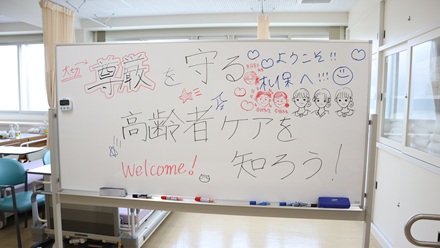 大切
尊厳を守る
ようこそ!!
札保へ!!!
高齢者ケアを
Welcome!
知ろう!